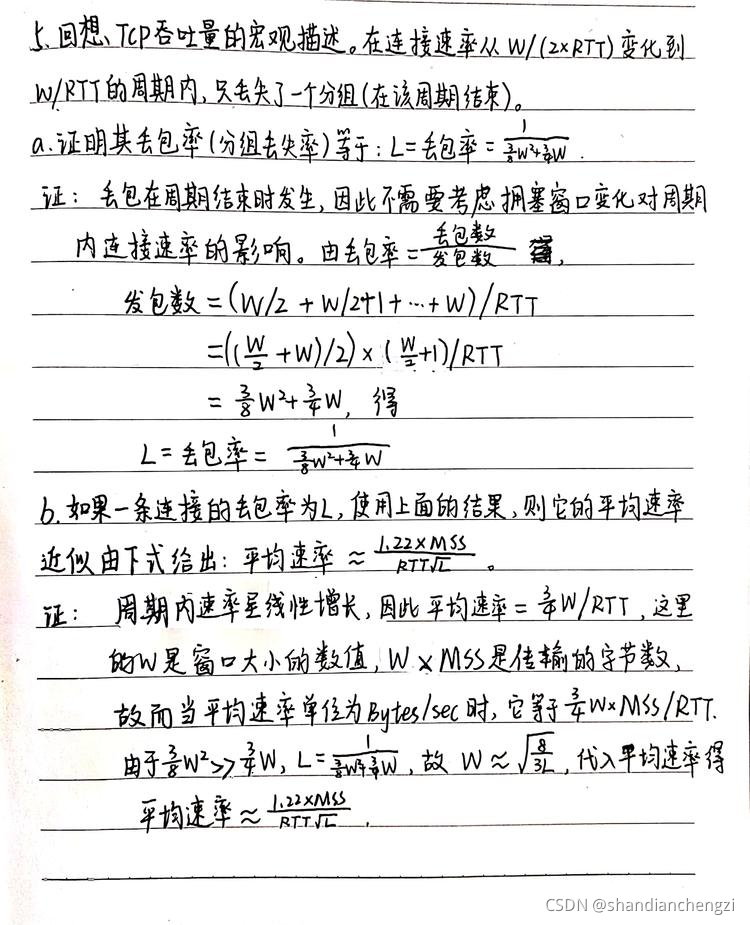 5. 回想 TCP吞吐量的宏观描述。在连接速率从 W/(2×RTT) 变化到
W/RTT 的周期内, 只丢失了一个分组(在该周期结束)。
a. 证明其丢包率(分组丢失率)等于: L = 丢包率 = 1/(3/8 W²+3/4 W) .
证: 丢包在周期结束时发生, 因此不需要考虑拥塞窗口变化对周期
内连接速率的影响。由丢包率 = 丢包数/发包数 得,
发包数 = (W/2 + W/2+1 + ... + W)/RTT
= ((W/2 + W)/2) × (W/2+1)/RTT
= 3/8 W² + 3/4 W, 得
L = 丢包率 = 1/(3/8 W²+3/4 W)
b. 如果一条连接的丢包率为L, 使用上面的结果, 则它的平均速率
近似由下式给出: 平均速率 ≈ 1.22×MSS/(RTT√L) 。
证: 周期内速率呈线性增长, 因此平均速率 = 3/4 W/RTT, 这里
的W是窗口大小的数值, W × MSS是传输的字节数,
故而当平均速率单位为Bytes/sec时, 它等于 3/4 W×MSS/RTT.
由于 3/8 W² >> 3/4 W, L = 1/(3/8 W²+3/4 W), 故 W ≈ √(8/3L), 代入平均速率得
平均速率 ≈ 1.22×MSS/(RTT√L) .
CSDN @shandianchengzi